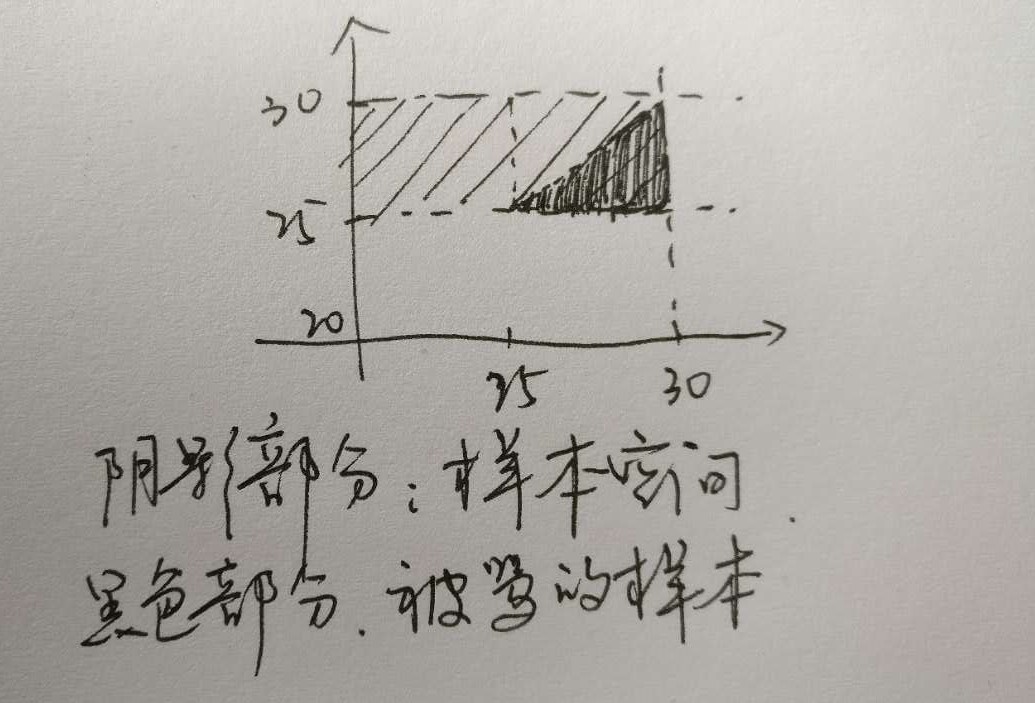 30
25
20
25
30
阴影部分:样本空间.
黑色部分.被骂的样本